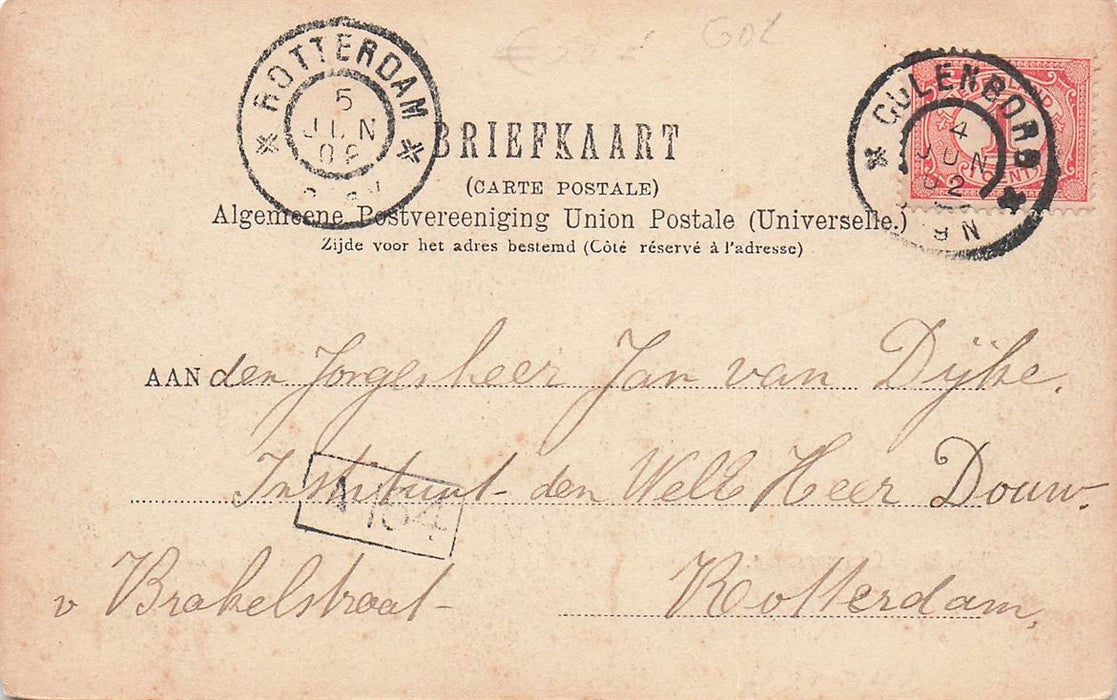 ROTTERDAM
5
JUN
02
CULENBORG
4
JUN
02
9N
BRIEFKAART
(CARTE POSTALE)
Algemeene Postvereeniging Union Postale (Universelle.)
Zijde voor het adres bestemd (Côté réservé à l'adresse)
AAN den Jongesheer Jan van Dijke.
Instituut den Well Heer Douw.
v Brakelstraat
Rotterdam,